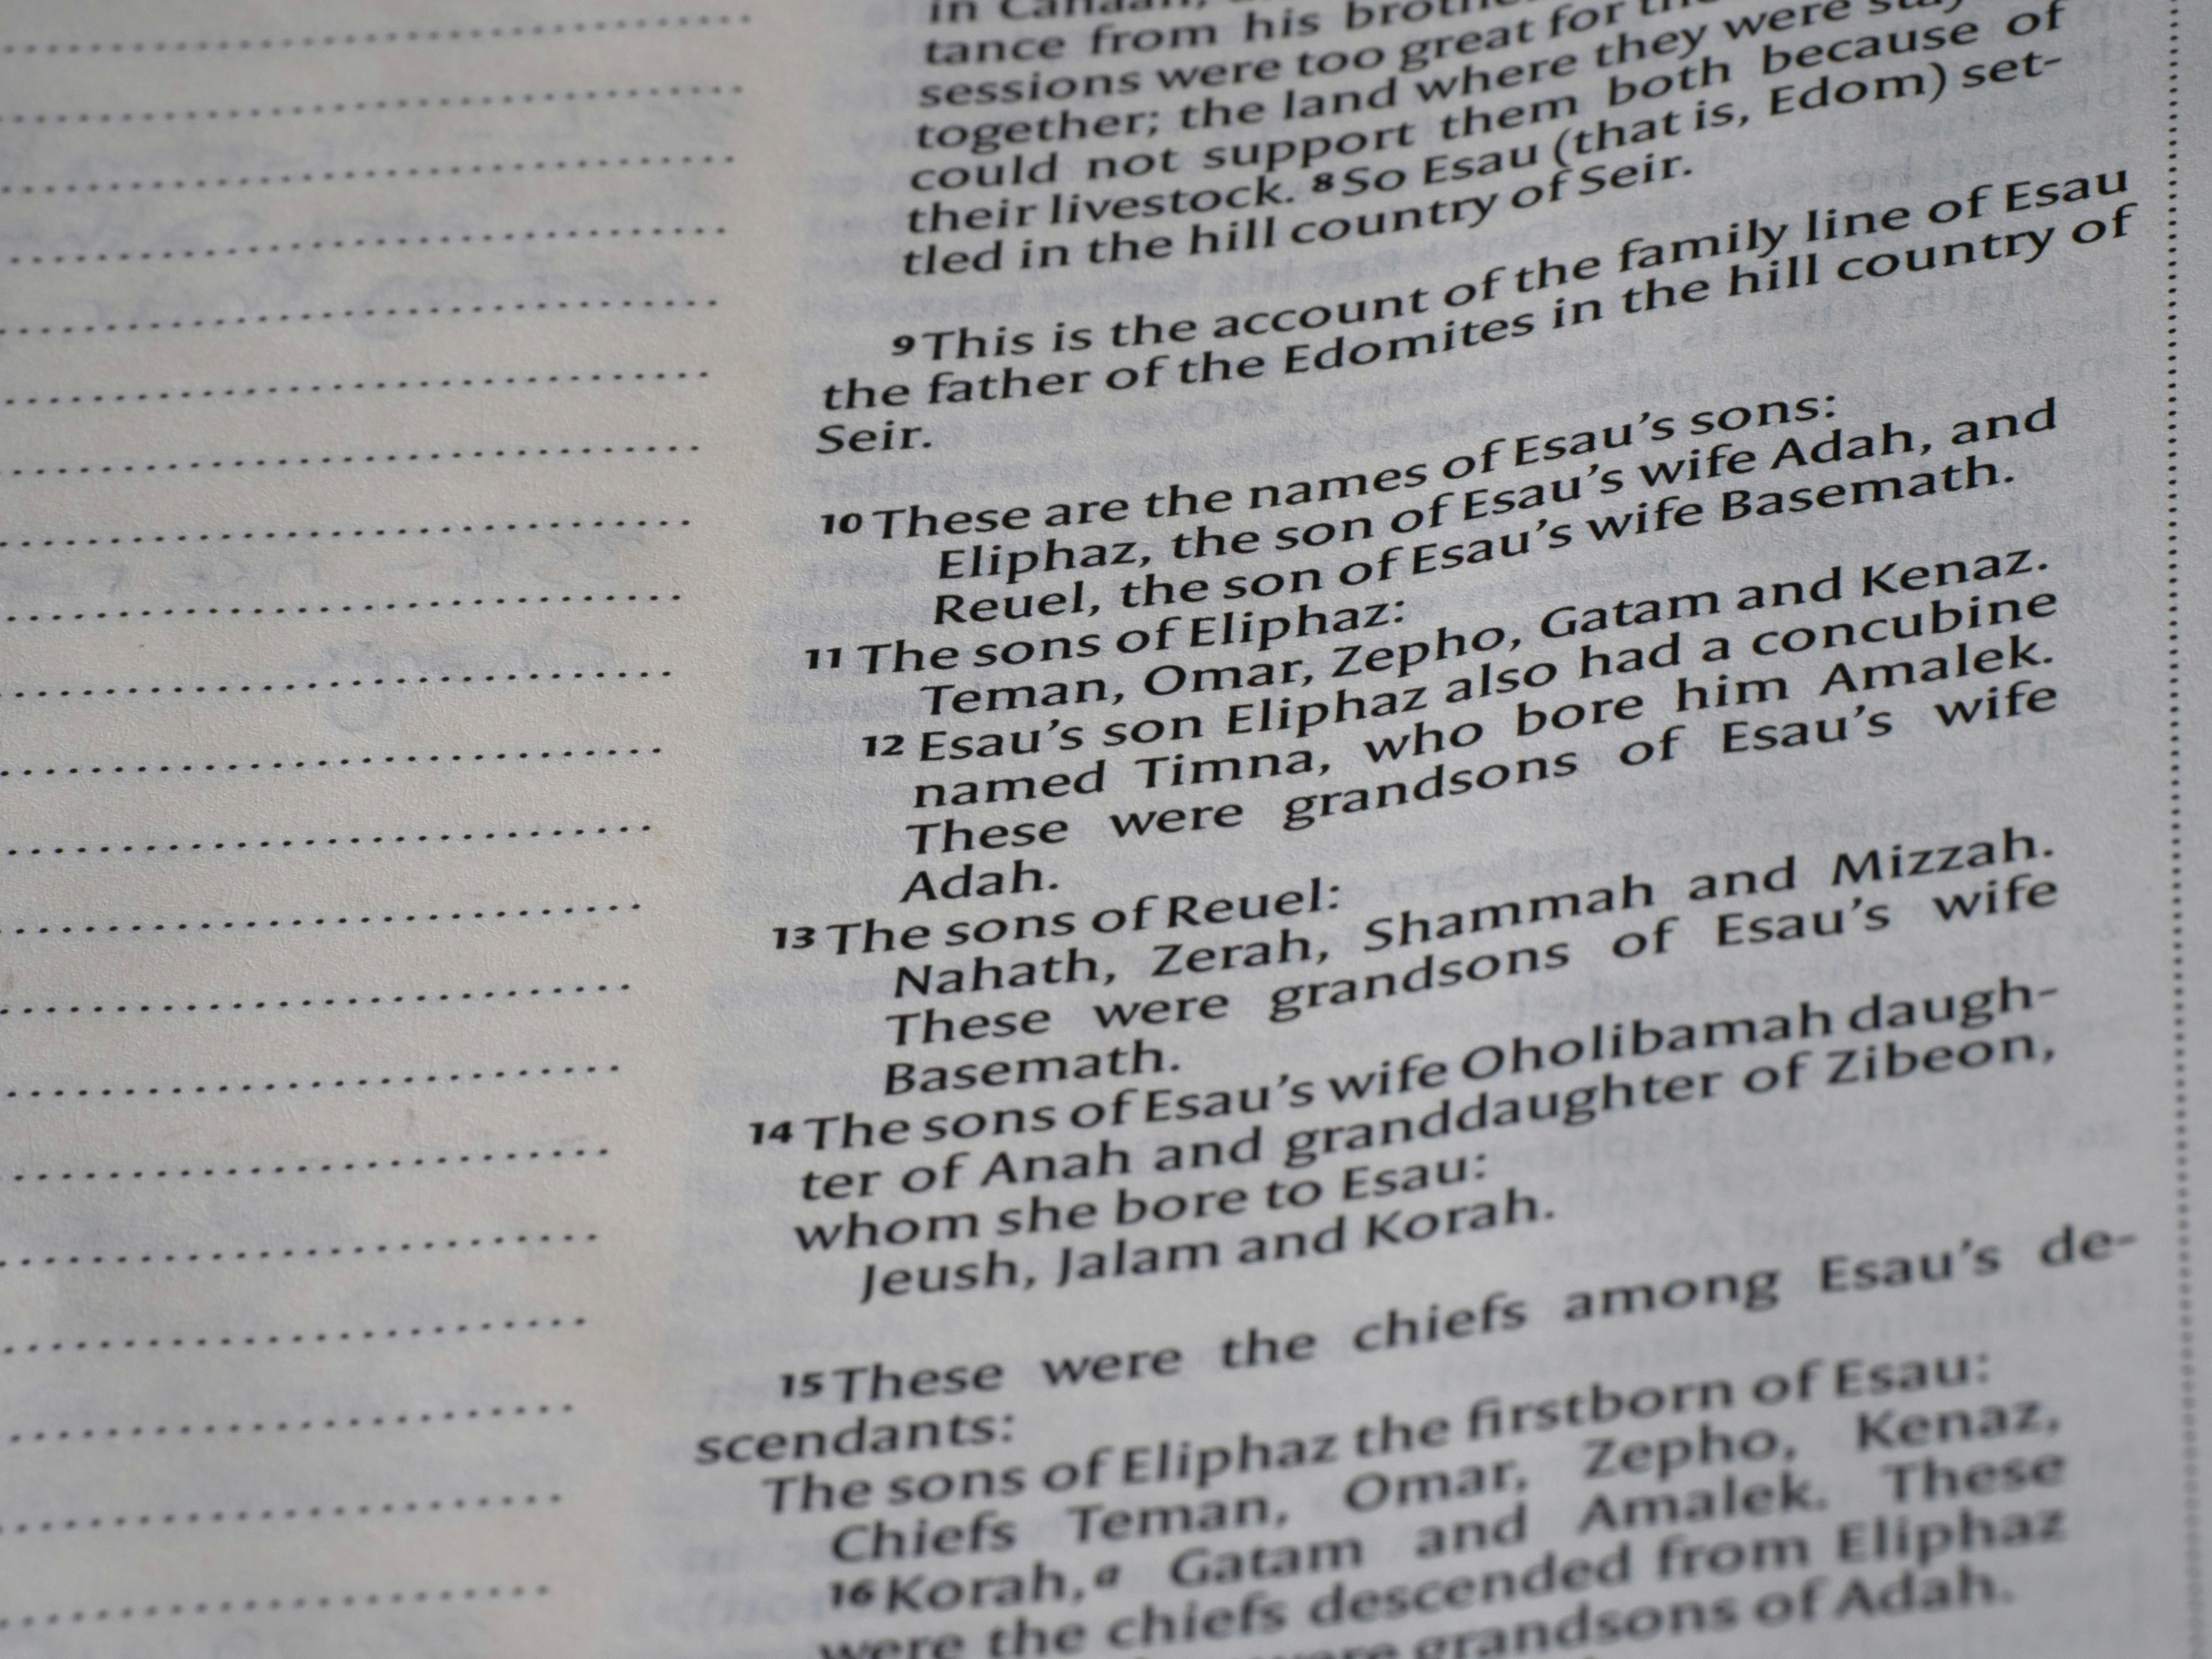 in Canaan,
tance from his
sessions were too great for
together; the land where they were
could not support them both because of
their livestock. 8 So Esau (that is, Edom) set-
tled in the hill country of Seir.
9 This is the account of the family line of Esau
the father of the Edomites in the hill country of
Seir.
10 These are the names of Esau's sons:
Eliphaz, the son of Esau's wife Adah, and
Reuel, the son of Esau's wife Basemath.
11 The sons of Eliphaz:
Teman, Omar, Zepho, Gatam and Kenaz.
12 Esau's son Eliphaz also had a concubine
named Timna, who bore him Amalek.
These were grandsons of Esau's wife
Adah.
13 The sons of Reuel:
Nahath, Zerah, Shammah and Mizzah.
These were grandsons of Esau's wife
Basemath.
14 The sons of Esau's wife Oholibamah daugh-
ter of Anah and granddaughter of Zibeon,
whom she bore to Esau:
Jeush, Jalam and Korah.
15 These were the chiefs among Esau's de-
scendants:
The sons of Eliphaz the firstborn of Esau:
Chiefs Teman, Omar, Zepho, Kenaz,
16 Korah,a Gatam and Amalek. These
were the chiefs descended from Eliphaz
were grandsons of Adah.